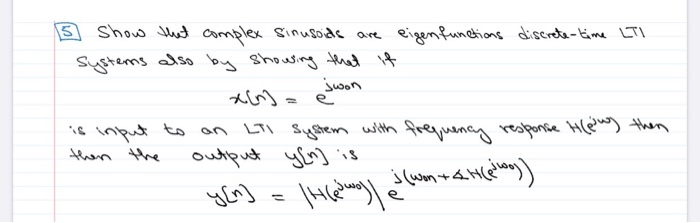 5 Show that complex Sinusods are eigenfunctions discrete-time LTI
Systems also by showing that if
x[n] = e^{jω₀n}
is input to an LTI system with frequency response H(e^{jω}) then
then the output y[n] is
y[n] = |H(e^{jω₀})| e^{j(ω₀n+∡H(e^{jω₀}))}